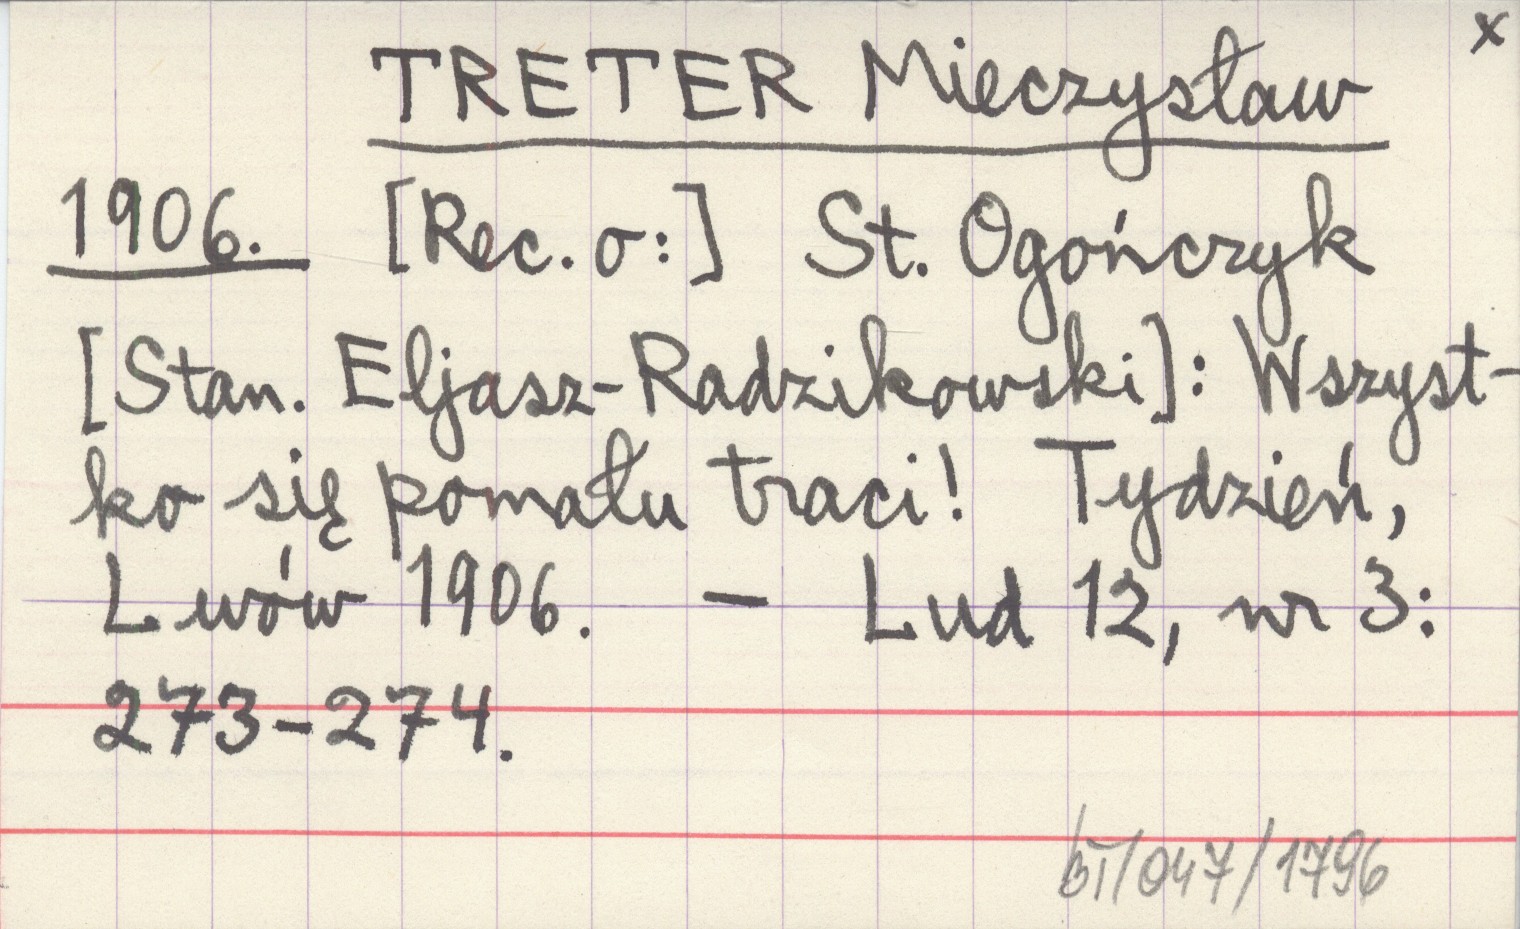 x
TRETER Mieczysław
1906. [Rec. o:] St. Ogończyk
[Stan. Eljasz-Radzikowski]: Wszyst-
ko się pomału traci! Tydzień,
Lwów 1906. – Lud 12, nr 3:
273-274.
BI/047/1796